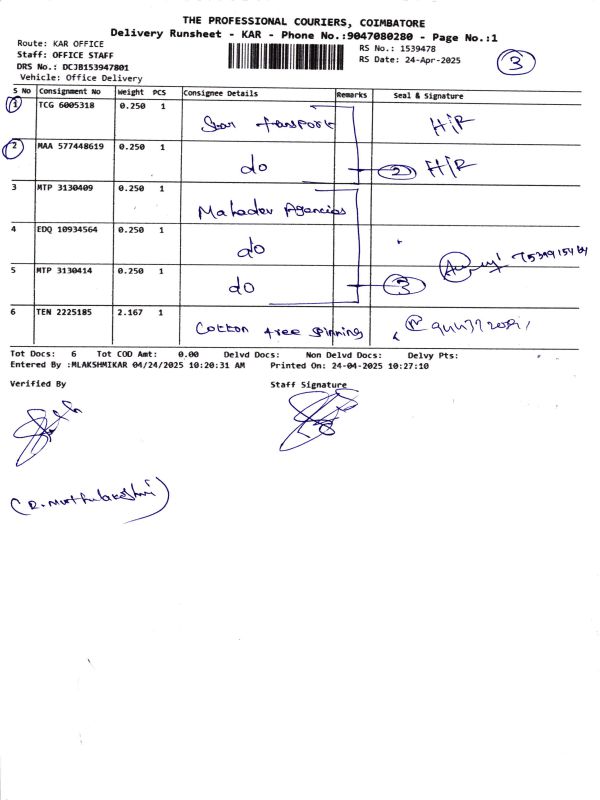 THE PROFESSIONAL COURIERS, COIMBATORE
Delivery Runsheet - KAR - Phone No.:9047080280 - Page No.:1
Route: KAR OFFICE
RS No.: 1539478
Staff: OFFICE STAFF
RS Date: 24-Apr-2025
3
DRS No.: DCJB153947801
Vehicle: Office Delivery
S No Consignment No Weight PCS Consignee Details Remarks Seal & Signature
1 TCG 6005318 0.250 1 Star Transport H/R
2 MAA 577448619 0.250 1 do 2 H/R
3 MTP 3130409 0.250 1 Mahadev Agencies
4 EDQ 10934564 0.250 1 do
5 MTP 3130414 0.250 1 do 3
6 TEN 2225185 2.167 1 Cotton tree Spinning
Tot Docs: 6 Tot COD Amt: 0.00 Delvd Docs: Non Delvd Docs: Delvy Pts:
Entered By :MLAKSHMIKAR 04/24/2025 10:20:31 AM Printed On: 24-04-2025 10:27:10
Verified By Staff Signature
(R. Muthulakshmi)